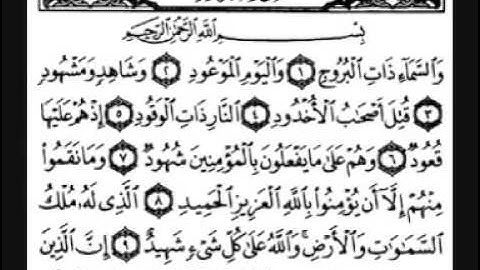 بِسْمِ ٱللَّهِ ٱلرَّحْمَٰنِ ٱلرَّحِيمِ
وَٱلسَّمَآءِ ذَاتِ ٱلْبُرُوجِ ١ وَٱلْيَوْمِ ٱلْمَوْعُودِ ٢ وَشَاهِدٍ وَمَشْهُودٍ
٣ قُتِلَ أَصْحَٰبُ ٱلْأُخْدُودِ ٤ ٱلنَّارِ ذَاتِ ٱلْوَقُودِ ٥ إِذْ هُمْ عَلَيْهَا
قُعُودٌ ٦ وَهُمْ عَلَىٰ مَا يَفْعَلُونَ بِٱلْمُؤْمِنِينَ شُهُودٌ ٧ وَمَا نَقَمُوا۟
مِنْهُمْ إِلَّآ أَن يُؤْمِنُوا۟ بِٱللَّهِ ٱلْعَزِيزِ ٱلْحَمِيدِ ٨ ٱلَّذِى لَهُۥ مُلْكُ
ٱلسَّمَٰوَٰتِ وَٱلْأَرْضِ ۚ وَٱللَّهُ عَلَىٰ كُلِّ شَىْءٍ شَهِيدٌ ٩ إِنَّ ٱلَّذِينَ